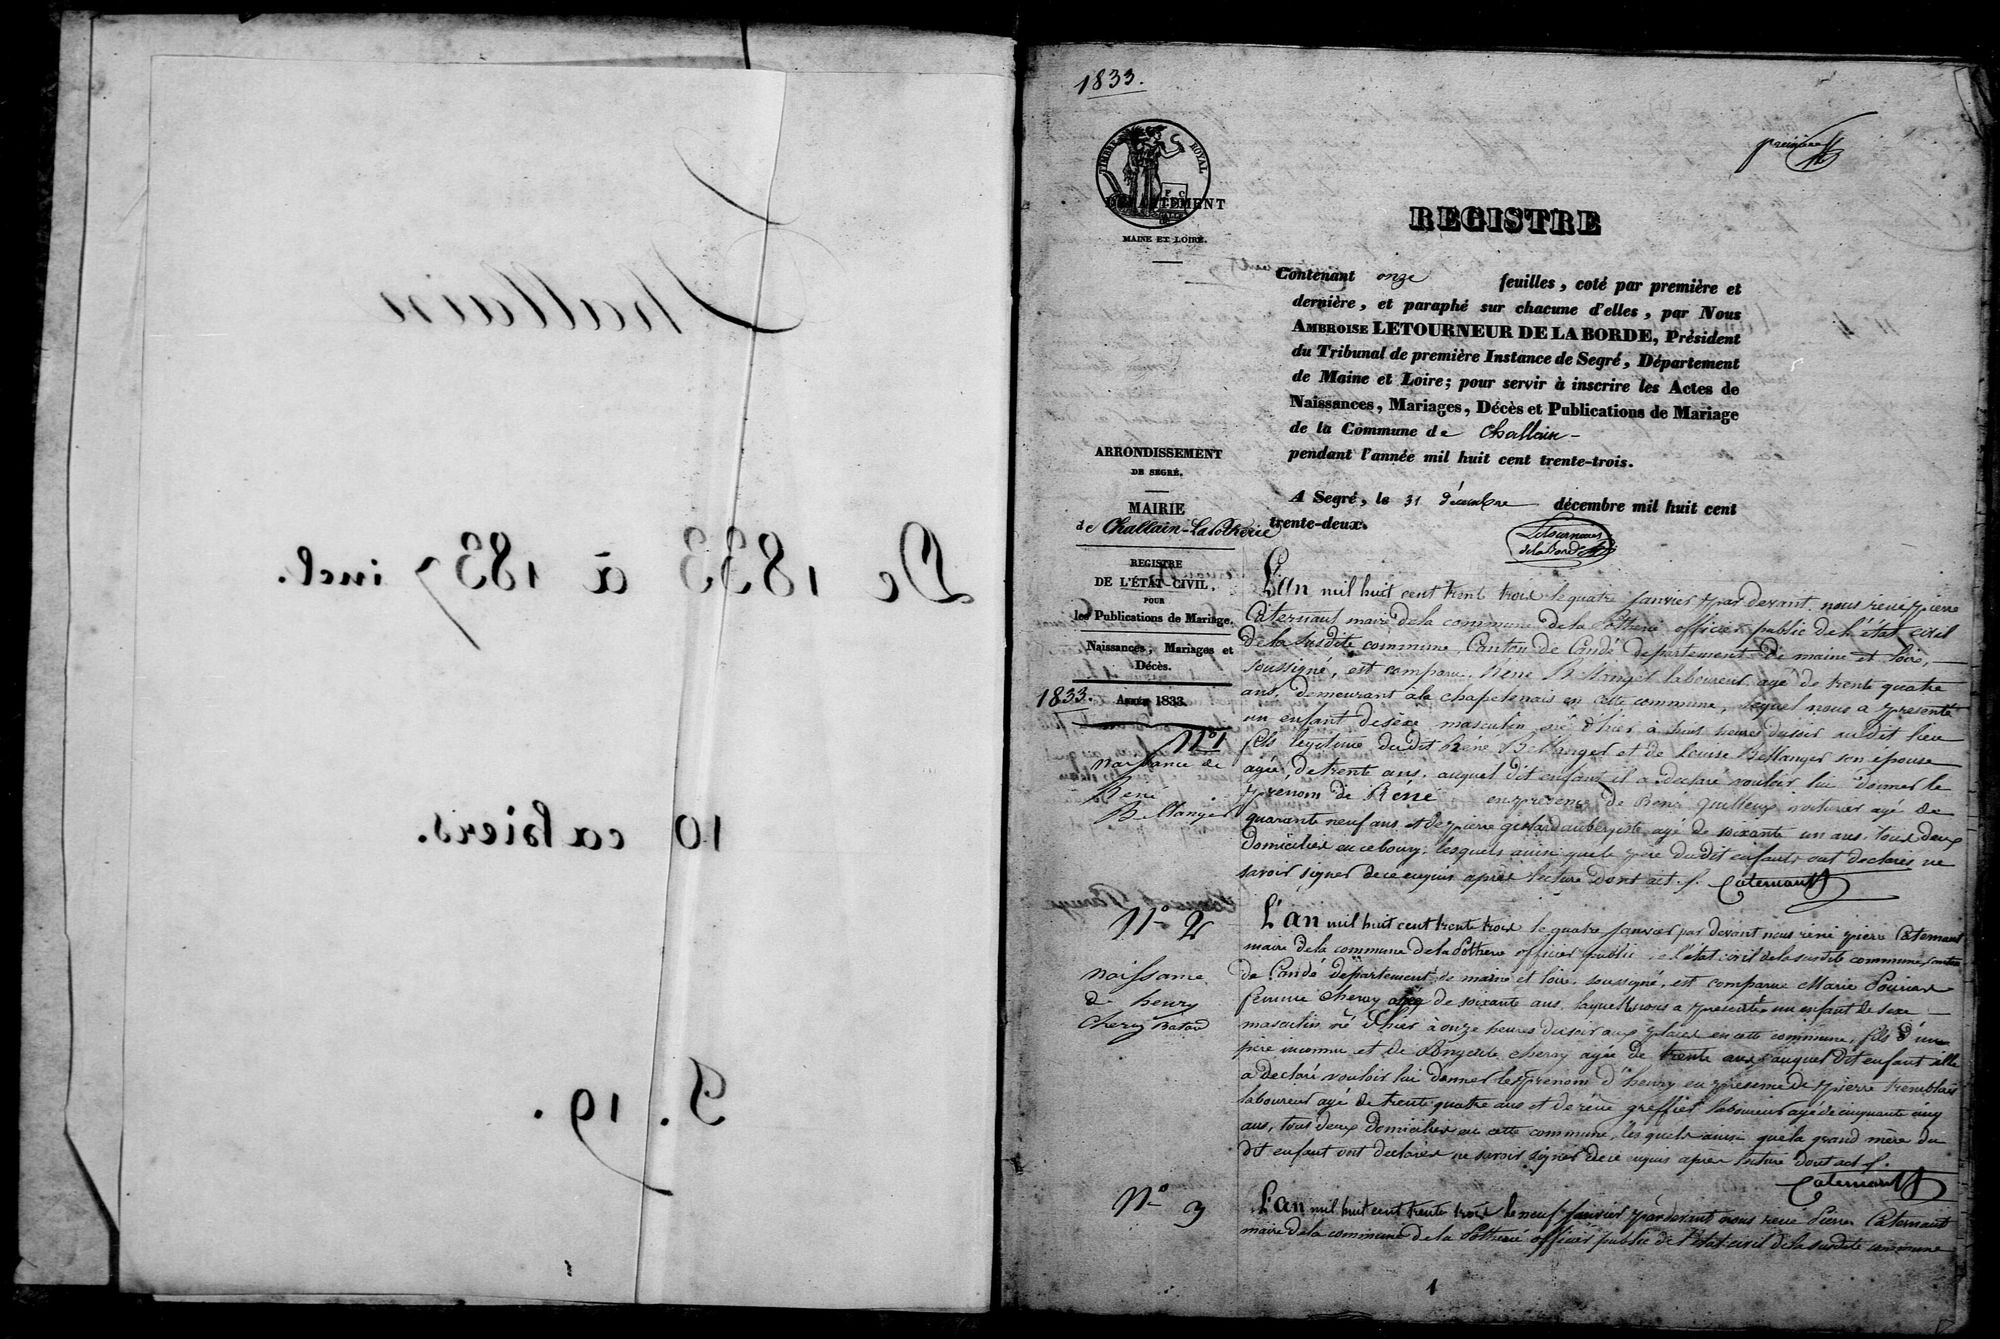 Challain
De 1833 à 1837 incl.
10 cahiers.
P. 19.
1833.
première
TIMBRE ROYAL
DÉPARTEMENT
MAINE ET LOIRE.
REGISTRE
Contenant onze feuilles, coté par première et
dernière, et paraphé sur chacune d'elles, par Nous
AMBROISE LETOURNEUR DE LA BORDE, Président
du Tribunal de première Instance de Segré, Département
de Maine et Loire; pour servir à inscrire les Actes de
Naissances, Mariages, Décès et Publications de Mariage
de la Commune de Challain
pendant l'année mil huit cent trente-trois.
A Segré, le 31 décembre décembre mil huit cent
trente-deux.
Letourneur
de la Borde
ARRONDISSEMENT
DE SEGRÉ.
MAIRIE
de Challain-Lapotherie
REGISTRE
DE L'ÉTAT-CIVIL,
POUR
les Publications de Mariage,
Naissances, Mariages et
Décès.
1833.
ANNÉE 1833.
N° 1
naissance de
René
Bellanger
L'an mil huit cent trent trois le quatre janvier par devant nous rené pierre
Caternault maire de la commune de la Potherie officier public de l'état civil
de la susdite commune, Canton de Candé departement de maine et loire,
soussigné, est comparu René Bellanger laboureur agé de trente quatre
ans, demeurant à la chapelenais en cette commune, lequel nous a presenté
un enfant de sexe masculin né d'hier à huit heures du soir au dit lieu
fils legitime du dit René Bellanger et de Louise Bellanger son épouse
agée de trente ans, auquel dit enfant il a declaré vouloir lui donner le
prenom de René en presence de René quilleux voiturier agé de
quarante neuf ans et de pierre gislard aubergiste agé de soixante un ans, tous deux
domiciliés en ce bourg, lesquels ainsi que le père du dit enfant ont declarés ne
savoir signer de ce enquis après lecture dont act. f. Caternault
N° 2
naissance
de henry
Chery Batard
L'an mil huit cent trente trois le quatre janvier par devant nous réné pierre Caternault
maire de la commune de la Potherie officier public de l'état civil de la susdite commune, canton
de Candé departement de maine et loire, soussigné, est comparue Marie Poirier
femme chervy agée de soixante ans, laquelle nous a presenté un enfant de sexe
masculin né d'hier à onze heures du soir aux places en cette commune, fils d'un
père inconnu et de chervy agée de trente ans, auquel dit enfant elle
a declaré vouloir lui donner le prenom d'henry en presence de pierre tremblais
laboureur agé de trente quatre ans et de réné greffier laboureur agé de cinquante cinq
ans, tous deux domiciliés en cette commune, lesquels ainsi que la grand mère du
dit enfant ont declarés ne savoir signer de ce enquis après lecture dont act f.
Caternault
N° 3
L'an mil huit cent trente trois le neuf janvier par devant nous rené Pierre Caternault
maire de la commune de la Potherie officier public de l'état civil de la susdite commune
1